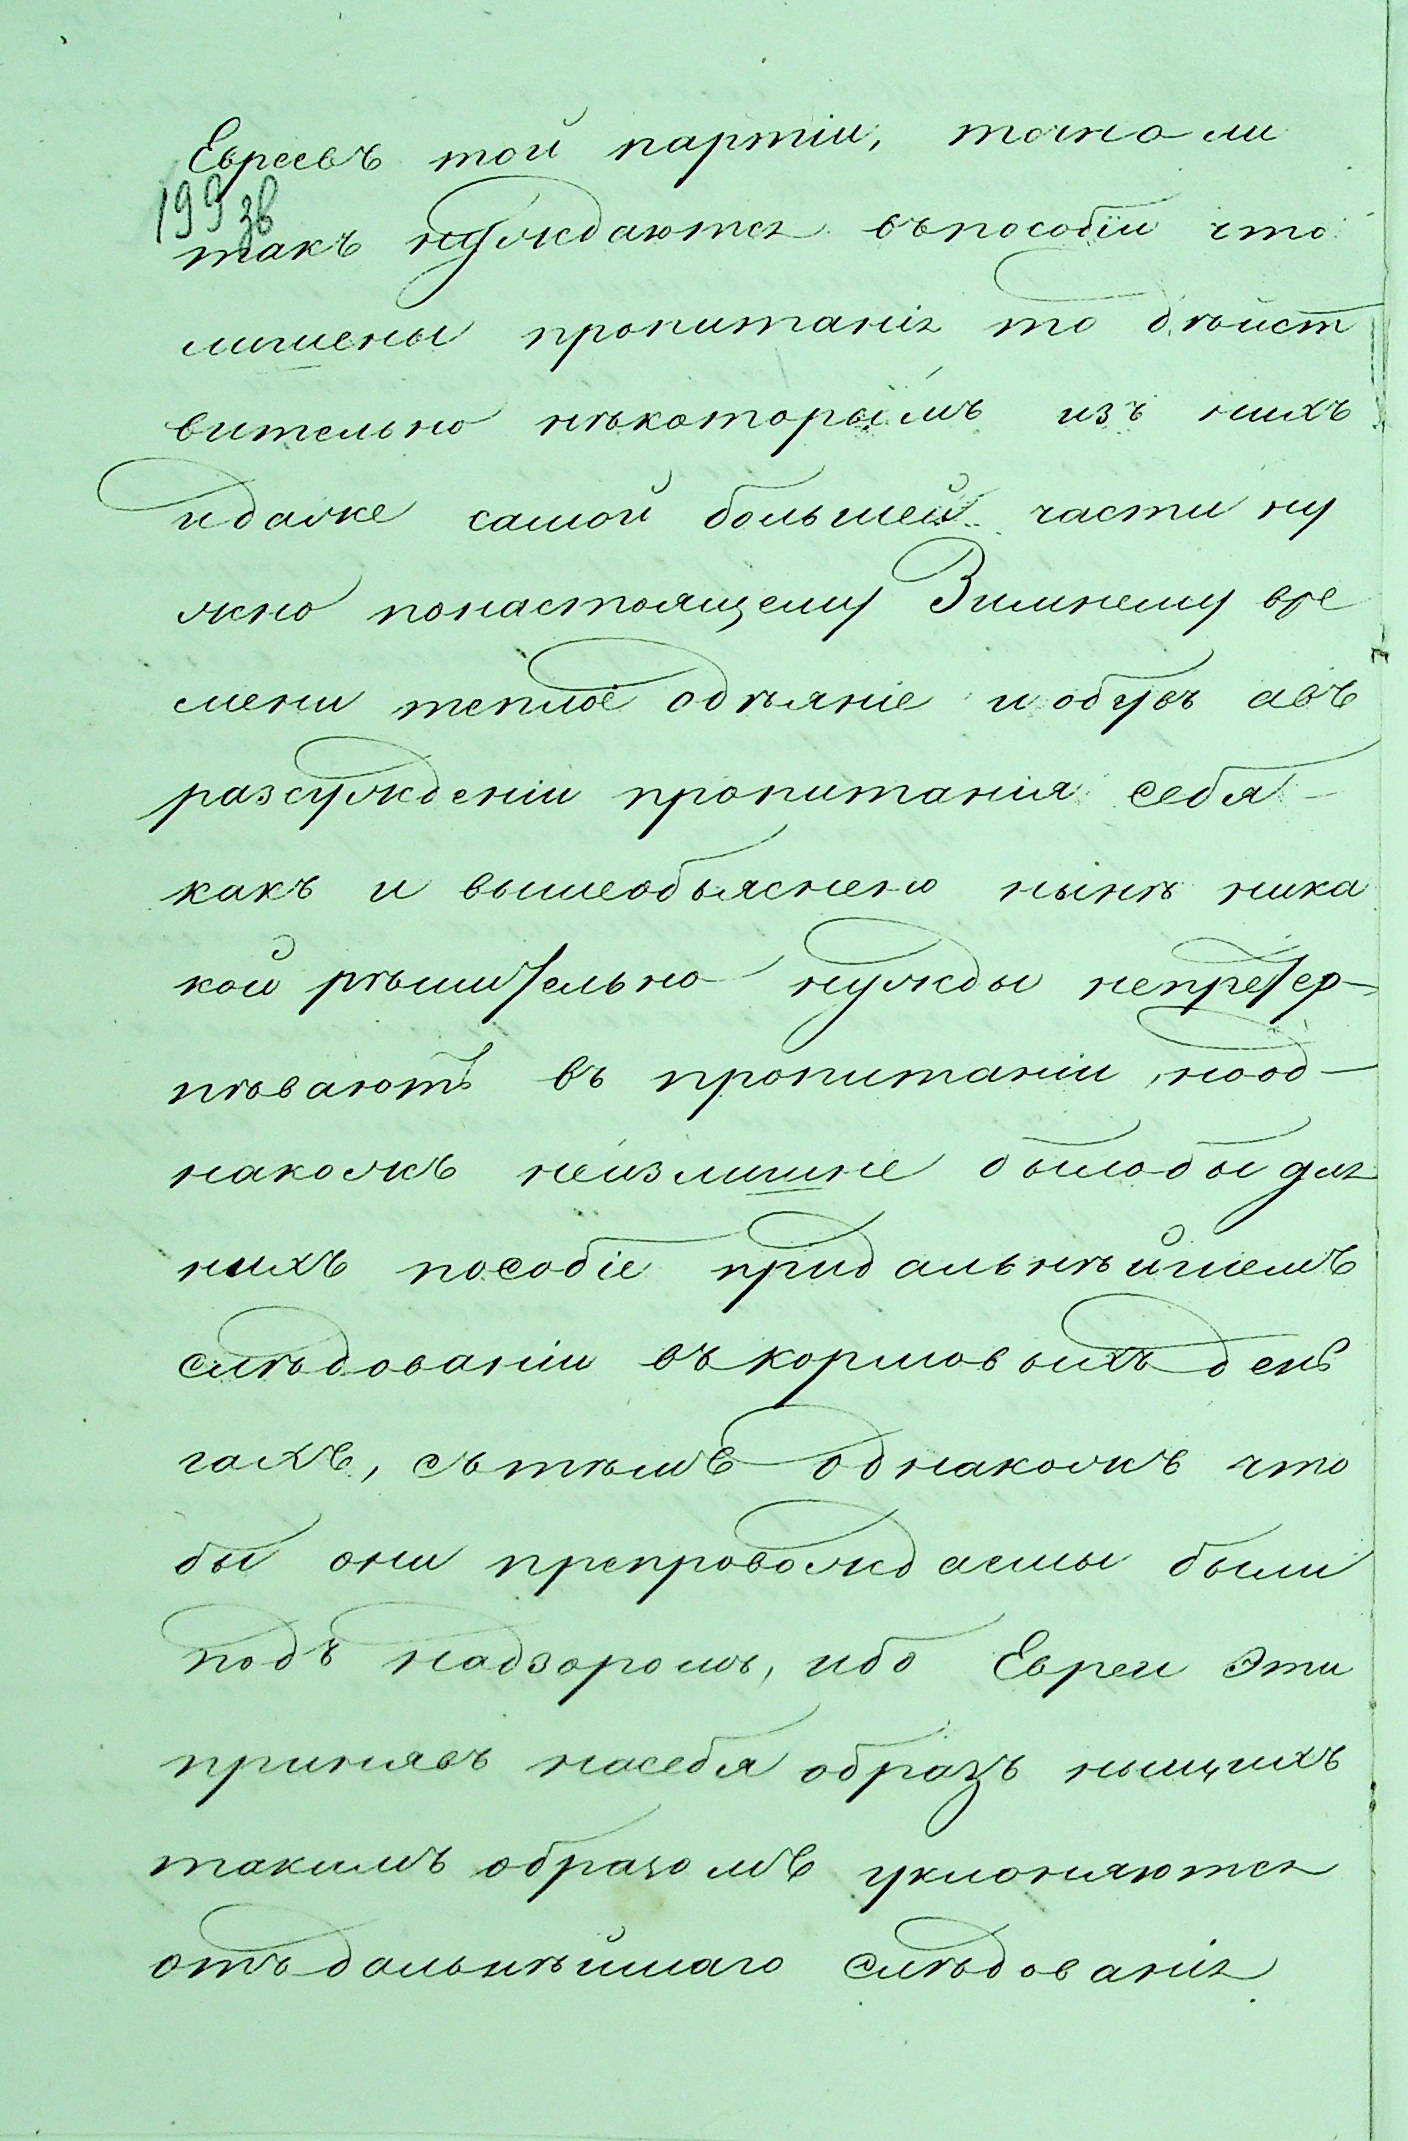 Евреевъ той партіи, точно ли
199 зв
такъ нуждаются въ пособіи что
лишены пропитанія то дѣйст
вительно нѣкоторымъ изъ нихъ
идаже самой большей части ну
жно понастоящему Зимнему вре
мени теплое одѣяніе и обувь авъ
разсужденіи пропитанія себя
какъ и вышеобъяснено нынѣ ника
кой рѣшительно нужды непретер-
пѣваютъ въ пропитаніи, ноод-
накожъ неизлишне былобы для
нихъ пособіе придальнѣйшемъ
слѣдованіи въ кормовыхъ день
гахъ, сътѣмъ однакожъ что
бы они препровождаемы были
подъ надзоромъ, ибо Евреи Эти
принявъ насебя образъ нищихъ
такимъ образомъ уклоняются
отъ дальнѣйшаго слѣдованія